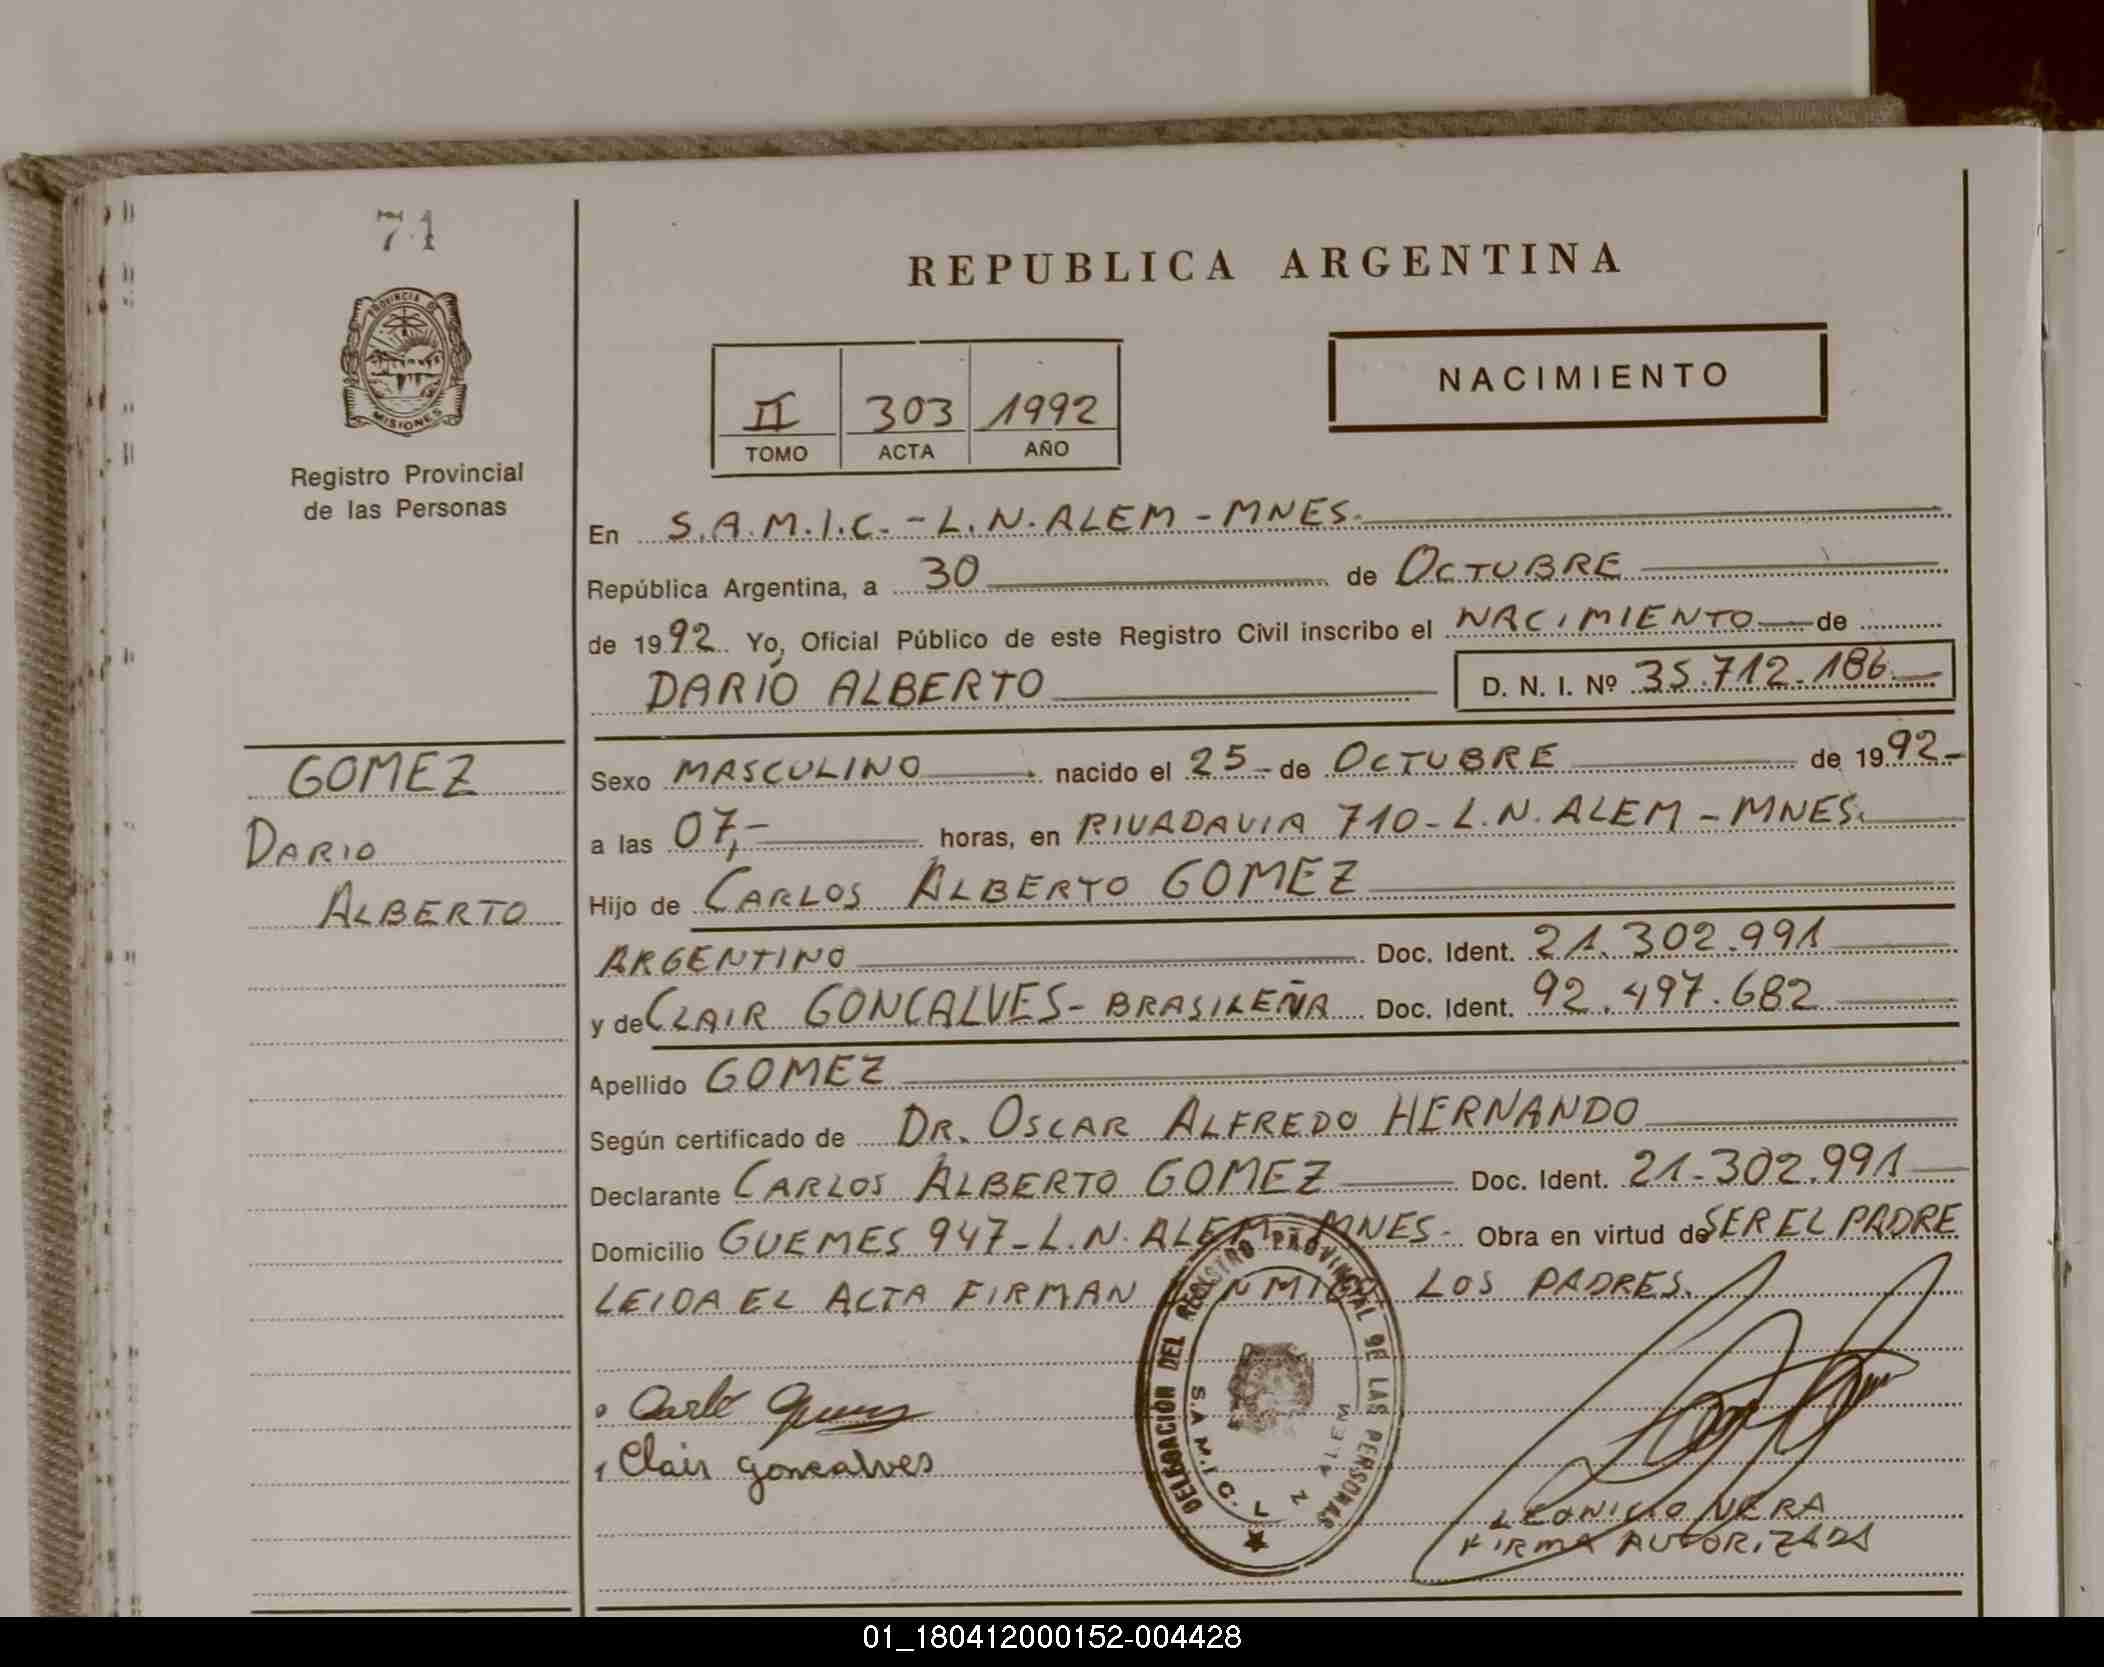 71
PROVINCIA DE
MISIONES
Registro Provincial
de las Personas
REPUBLICA ARGENTINA
II 303 1992
TOMO ACTA AÑO
NACIMIENTO
En S.A.M.I.C. - L.N. ALEM - MNES.
República Argentina, a 30 de OCTUBRE
de 1992. Yo, Oficial Público de este Registro Civil inscribo el NACIMIENTO de
DARÍO ALBERTO D. N. I. Nº 35.712.186
GOMEZ
DARIO
ALBERTO
Sexo MASCULINO nacido el 25 - de OCTUBRE de 1992-
a las 07,- horas, en RIVADAVIA 710 - L.N. ALEM - MNES.
Hijo de CARLOS ALBERTO GOMEZ
ARGENTINO Doc. Ident. 21.302.991
y de CLAIR GONCALVES - BRASILEÑA Doc. Ident. 92.497.682
Apellido GOMEZ
Según certificado de DR. OSCAR ALFREDO HERNANDO
Declarante CARLOS ALBERTO GOMEZ Doc. Ident. 21.302.991
Domicilio GUEMES 947 - L.N. ALEM - MNES - Obra en virtud de SER EL PADRE
LEIDA EL ACTA FIRMAN CONMIGO LOS PADRES.
DELEGACION DEL REGISTRO PROVINCIAL DE LAS PERSONAS
S.A.M.I.C. L N ALEM
Clair goncalves
LEONICIO VERA
FIRMA AUTORIZADA
01_180412000152-004428